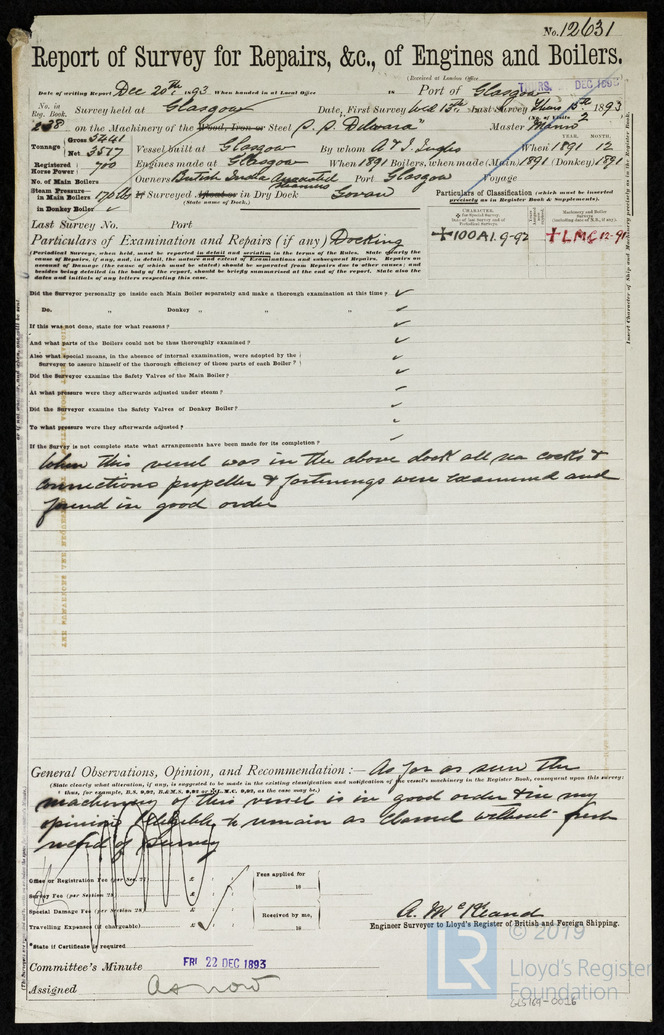 No. 12631
Report of Survey for Repairs, &c., of Engines and Boilers.
(Received at London Office THURS. DEC 1893
Date of writing Report Dec 20th 1893 When handed in at Local Office 18 Port of Glasgow
No. in Reg. Book. Survey held at Glasgow Date, First Survey Wed 13th Last Survey Thurs 1893
(No. of Visits 2
238 on the Machinery of the Wood, Iron or Steel S.S. "Dilwara" Master
Tonnage Gross 5441 Net 3517 Vessel built at Glasgow By whom A & J. Inglis When 1891 12
YEAR. MONTH.
Registered Horse Power 700 Engines made at Glasgow When 1891 Boilers, when made (Main) 1891 (Donkey) 1891
No. of Main Boilers Owners British India Associated Steamers Port Glasgow Voyage
Steam Pressure— in Main Boilers 170 lbs If Surveyed Afloat or in Dry Dock Govan
(State name of Dock.)
in Donkey Boiler ✓
Particulars of Classification (which must be inserted precisely as in Register Book & Supplements).
Last Survey No. Port
CHARACTER.
Machinery and Boiler Surveys (including date of N.B., if any).
✠100A1. 9-92 ✠LMC 12-91
Insert Character of Ship and Machinery precisely as in the Register Book.
Particulars of Examination and Repairs (if any) Docking
(Periodical Surveys, when held, must be reported in detail and seriatim in the terms of the Rules. State clearly the
cause of Repairs, if any, and, in detail, the nature and extent of Examinations and subsequent Repairs. Repairs on
account of Damage (the cause of which must be stated) should be separated from Repairs due to other causes; and
besides being detailed in the body of the report, should be briefly summarised at the end of the report. State also the
dates and initials of any letters respecting this case.
Did the Surveyor personally go inside each Main Boiler separately and make a thorough examination at this time? ✓
Do. „ Donkey „ „ „ ✓
If this was not done, state for what reasons? ✓
And what parts of the Boilers could not be thus thoroughly examined? ✓
Also what special means, in the absence of internal examination, were adopted by the
Surveyor to assure himself of the thorough efficiency of those parts of each Boiler? ✓
Did the Surveyor examine the Safety Valves of the Main Boiler? ✓
At what pressure were they afterwards adjusted under steam? ✓
Did the Surveyor examine the Safety Valves of Donkey Boiler? ✓
To what pressure were they afterwards adjusted? ✓
If the Survey is not complete state what arrangements have been made for its completion? ✓
When this vessel was in the above dock all sea cocks &
connections propeller & fastenings were examined and
found in good order
General Observations, Opinion, and Recommendation :— As far as seen the
(State clearly what alteration, if any, is suggested to be made in the existing classification and notification of the vessel's machinery in the Register Book, consequent upon this survey:
thus, for example, B.S. 9,92, B.&M.S. 9,92 or L.M.C. 9,92, as the case may be.)
machinery of this vessel is in good order & in my
opinion eligible to remain as classed without fresh
record of Survey
Office or Registration Fee (per Sec. 27) £ : :
Survey Fee (per Section 28) £ : :
Special Damage Fee (per Section 28) £ : :
Travelling Expenses (if chargeable) £ : :
Fees applied for
18
Received by me,
18
*State if Certificate required
A. McKeand
Engineer Surveyor to Lloyd's Register of British and Foreign Shipping.
Committee's Minute FRI 22 DEC 1893
Assigned as now
LR © 2019
Lloyd's Register
Foundation
GLS169-0026